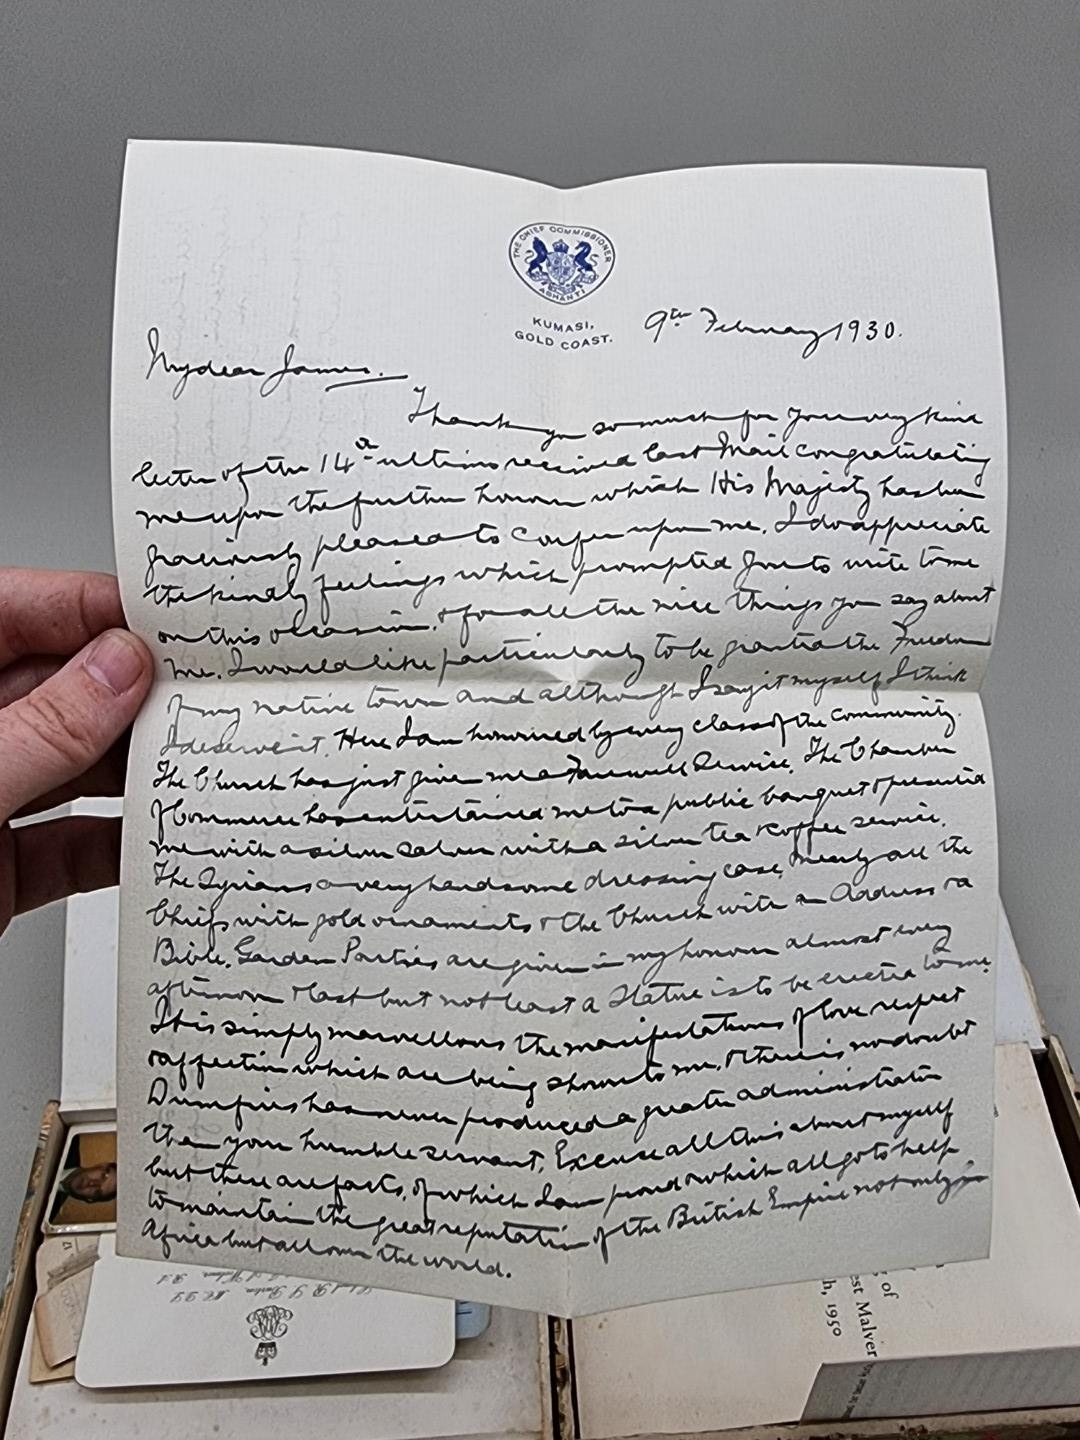 THE CHIEF COMMISSIONER
ASHANTI
KUMASI,
GOLD COAST.
9th February 1930.
My dear James.
Thank you so much for your very kind
letter of the 14th ultimo received last Mail congratulating
me upon the further honour which His Majesty has been
graciously pleased to confer upon me. I do appreciate
the kindly feelings which prompted you to write to me
on this occasion. & for all the nice things you say about
me. I would like particularly to be granted the Freedom
of my native town and although I say it myself I think
I deserve it. Here I am honoured by every class of the community.
The Church has just given me a Farewell Service. The Chamber
of Commerce has entertained me to a public banquet & presented
me with a silver salver with a silver tea & coffee service.
The Syrians a very handsome dressing case, nearly all the
Chiefs with gold ornaments & the Church with an Address & a
Bible. Garden Parties are given in my honour almost every
afternoon & last but not least a Statue is to be erected to me.
It is simply marvellous the manifestations of love respect
& affection which are being shown to me. & there is no doubt
Dumfries has never produced a greater administrator
than your humble servant. Excuse all this about myself
but these are facts, of which I am proud & which all go to help
to maintain the great reputation of the British Empire not only in
Africa but all over the world.
of
est Malver
h, 1950